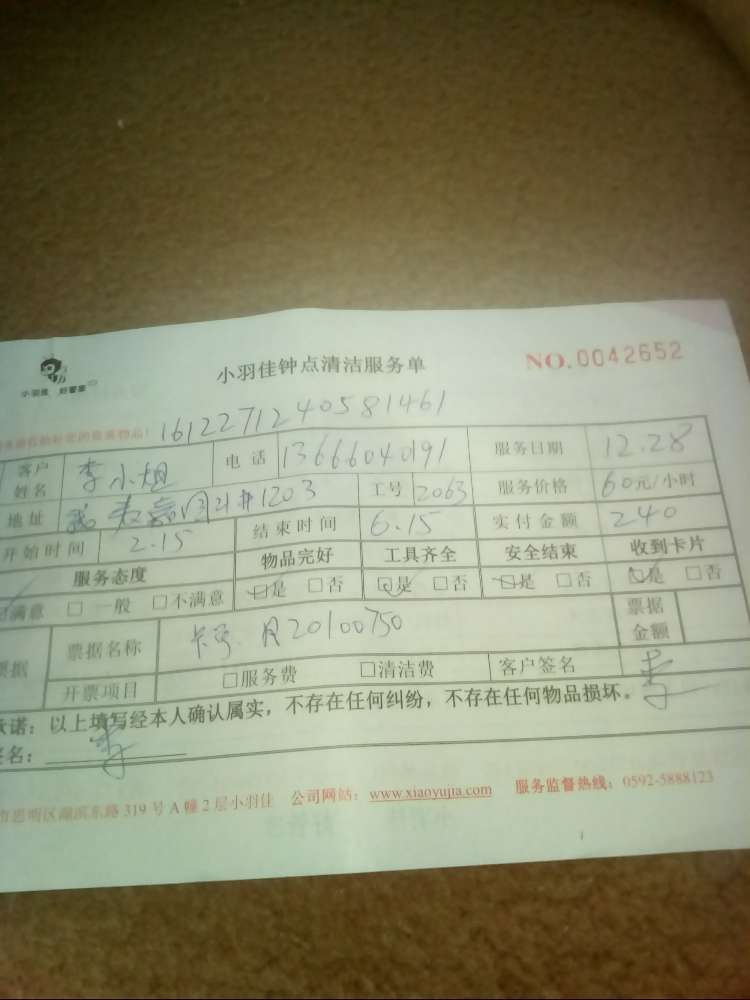 小羽佳 好管家
小羽佳钟点清洁服务单
NO.0042652
1612271240581461
客户姓名 李小姐 电话 13666040191 服务日期 12.28
地址 1203 工号 2063 服务价格 60元/小时
开始时间 2.15 结束时间 6.15 实付金额 240
服务态度 物品完好 工具齐全 安全结束 收到卡片
满意 □ 一般 □不满意 □是 □否 □是 □否 □是 □否 □是 □否
票据名称 卡号 A20100750 票据金额
开票项目 □服务费 □清洁费 客户签名 李
承诺：以上填写经本人确认属实，不存在任何纠纷，不存在任何物品损坏。
签名： 李
市思明区湖滨东路 319 号 A 幢 2 层小羽佳 公司网站：www.xiaoyujia.com 服务监督热线：0592-5888123